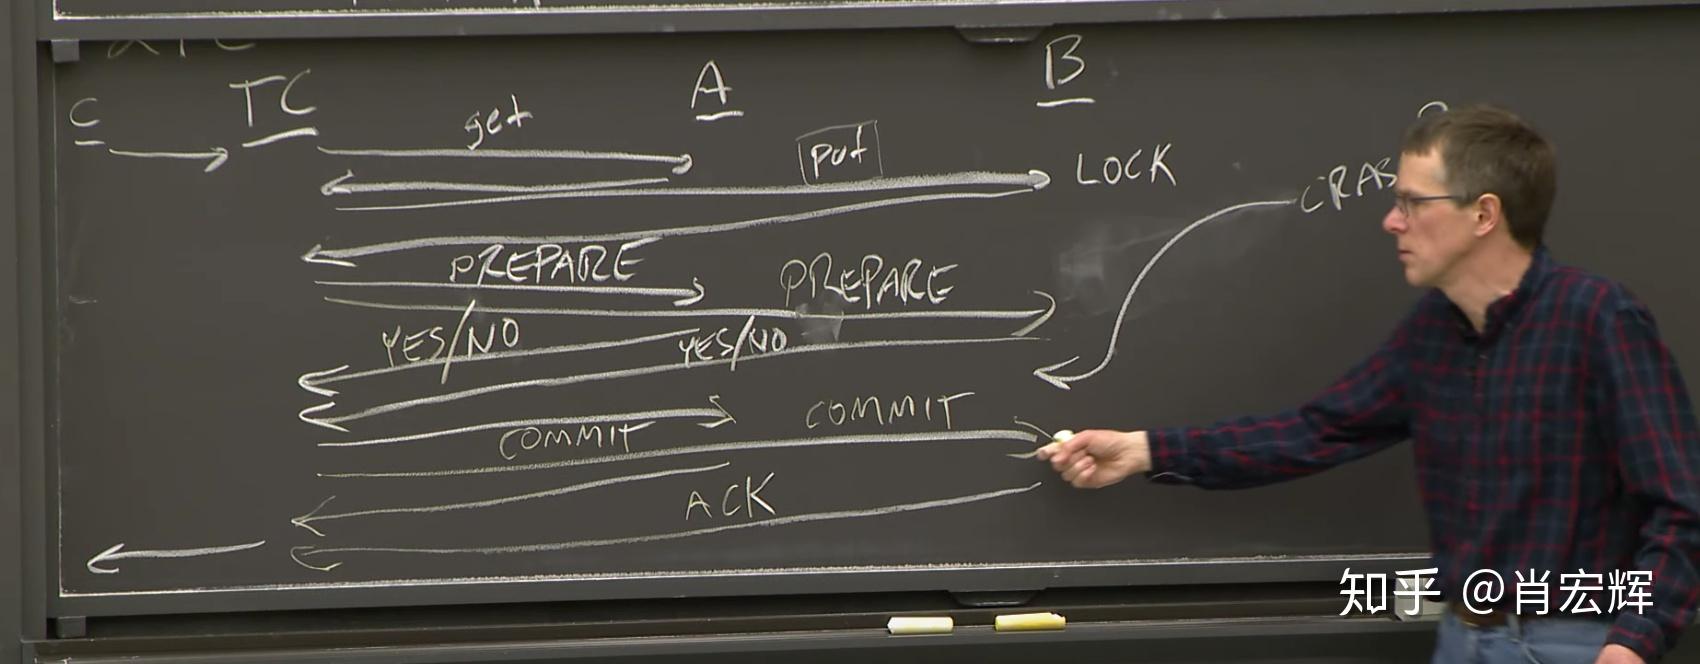 C
TC
A
B
get
put
LOCK
CRAS
PREPARE
PREPARE
YES/NO
YES/NO
COMMIT
COMMIT
ACK
知乎 @肖宏辉